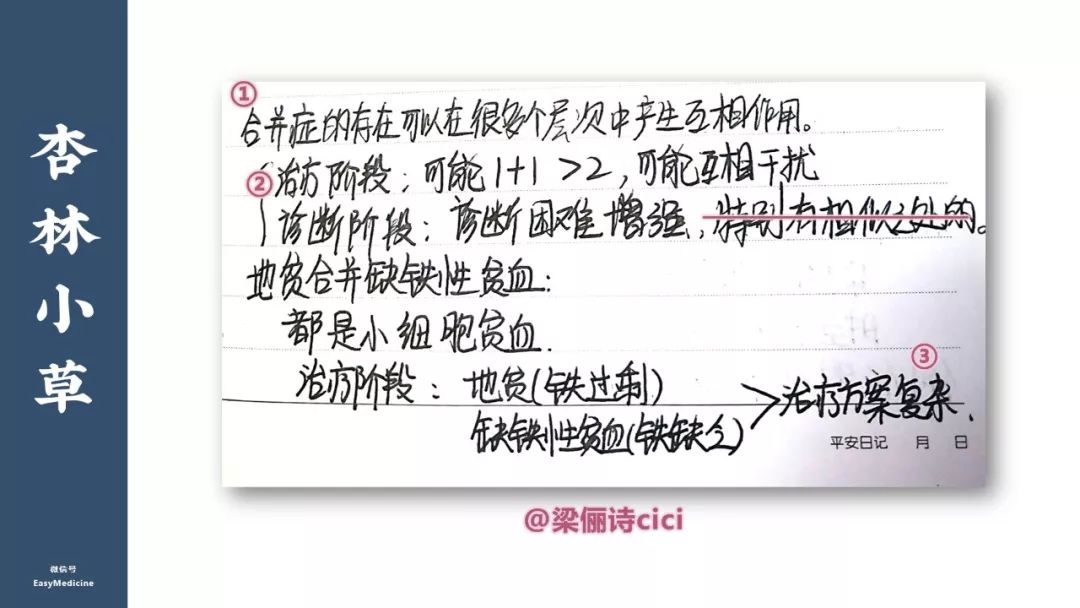 杏林小草
微信号
EasyMedicine
①
合并症的存在可以在很多个层次中产生互相作用。
②治疗阶段：可能1+1>2，可能互相干扰
诊断阶段：诊断困难增强，特别有相似之处的。
地贫合并缺铁性贫血：
都是小细胞贫血.
③
治疗阶段：地贫(铁过剩)
缺铁性贫血(铁缺乏)
治疗方案复杂.
平安日记 月 日
@梁俪诗cici